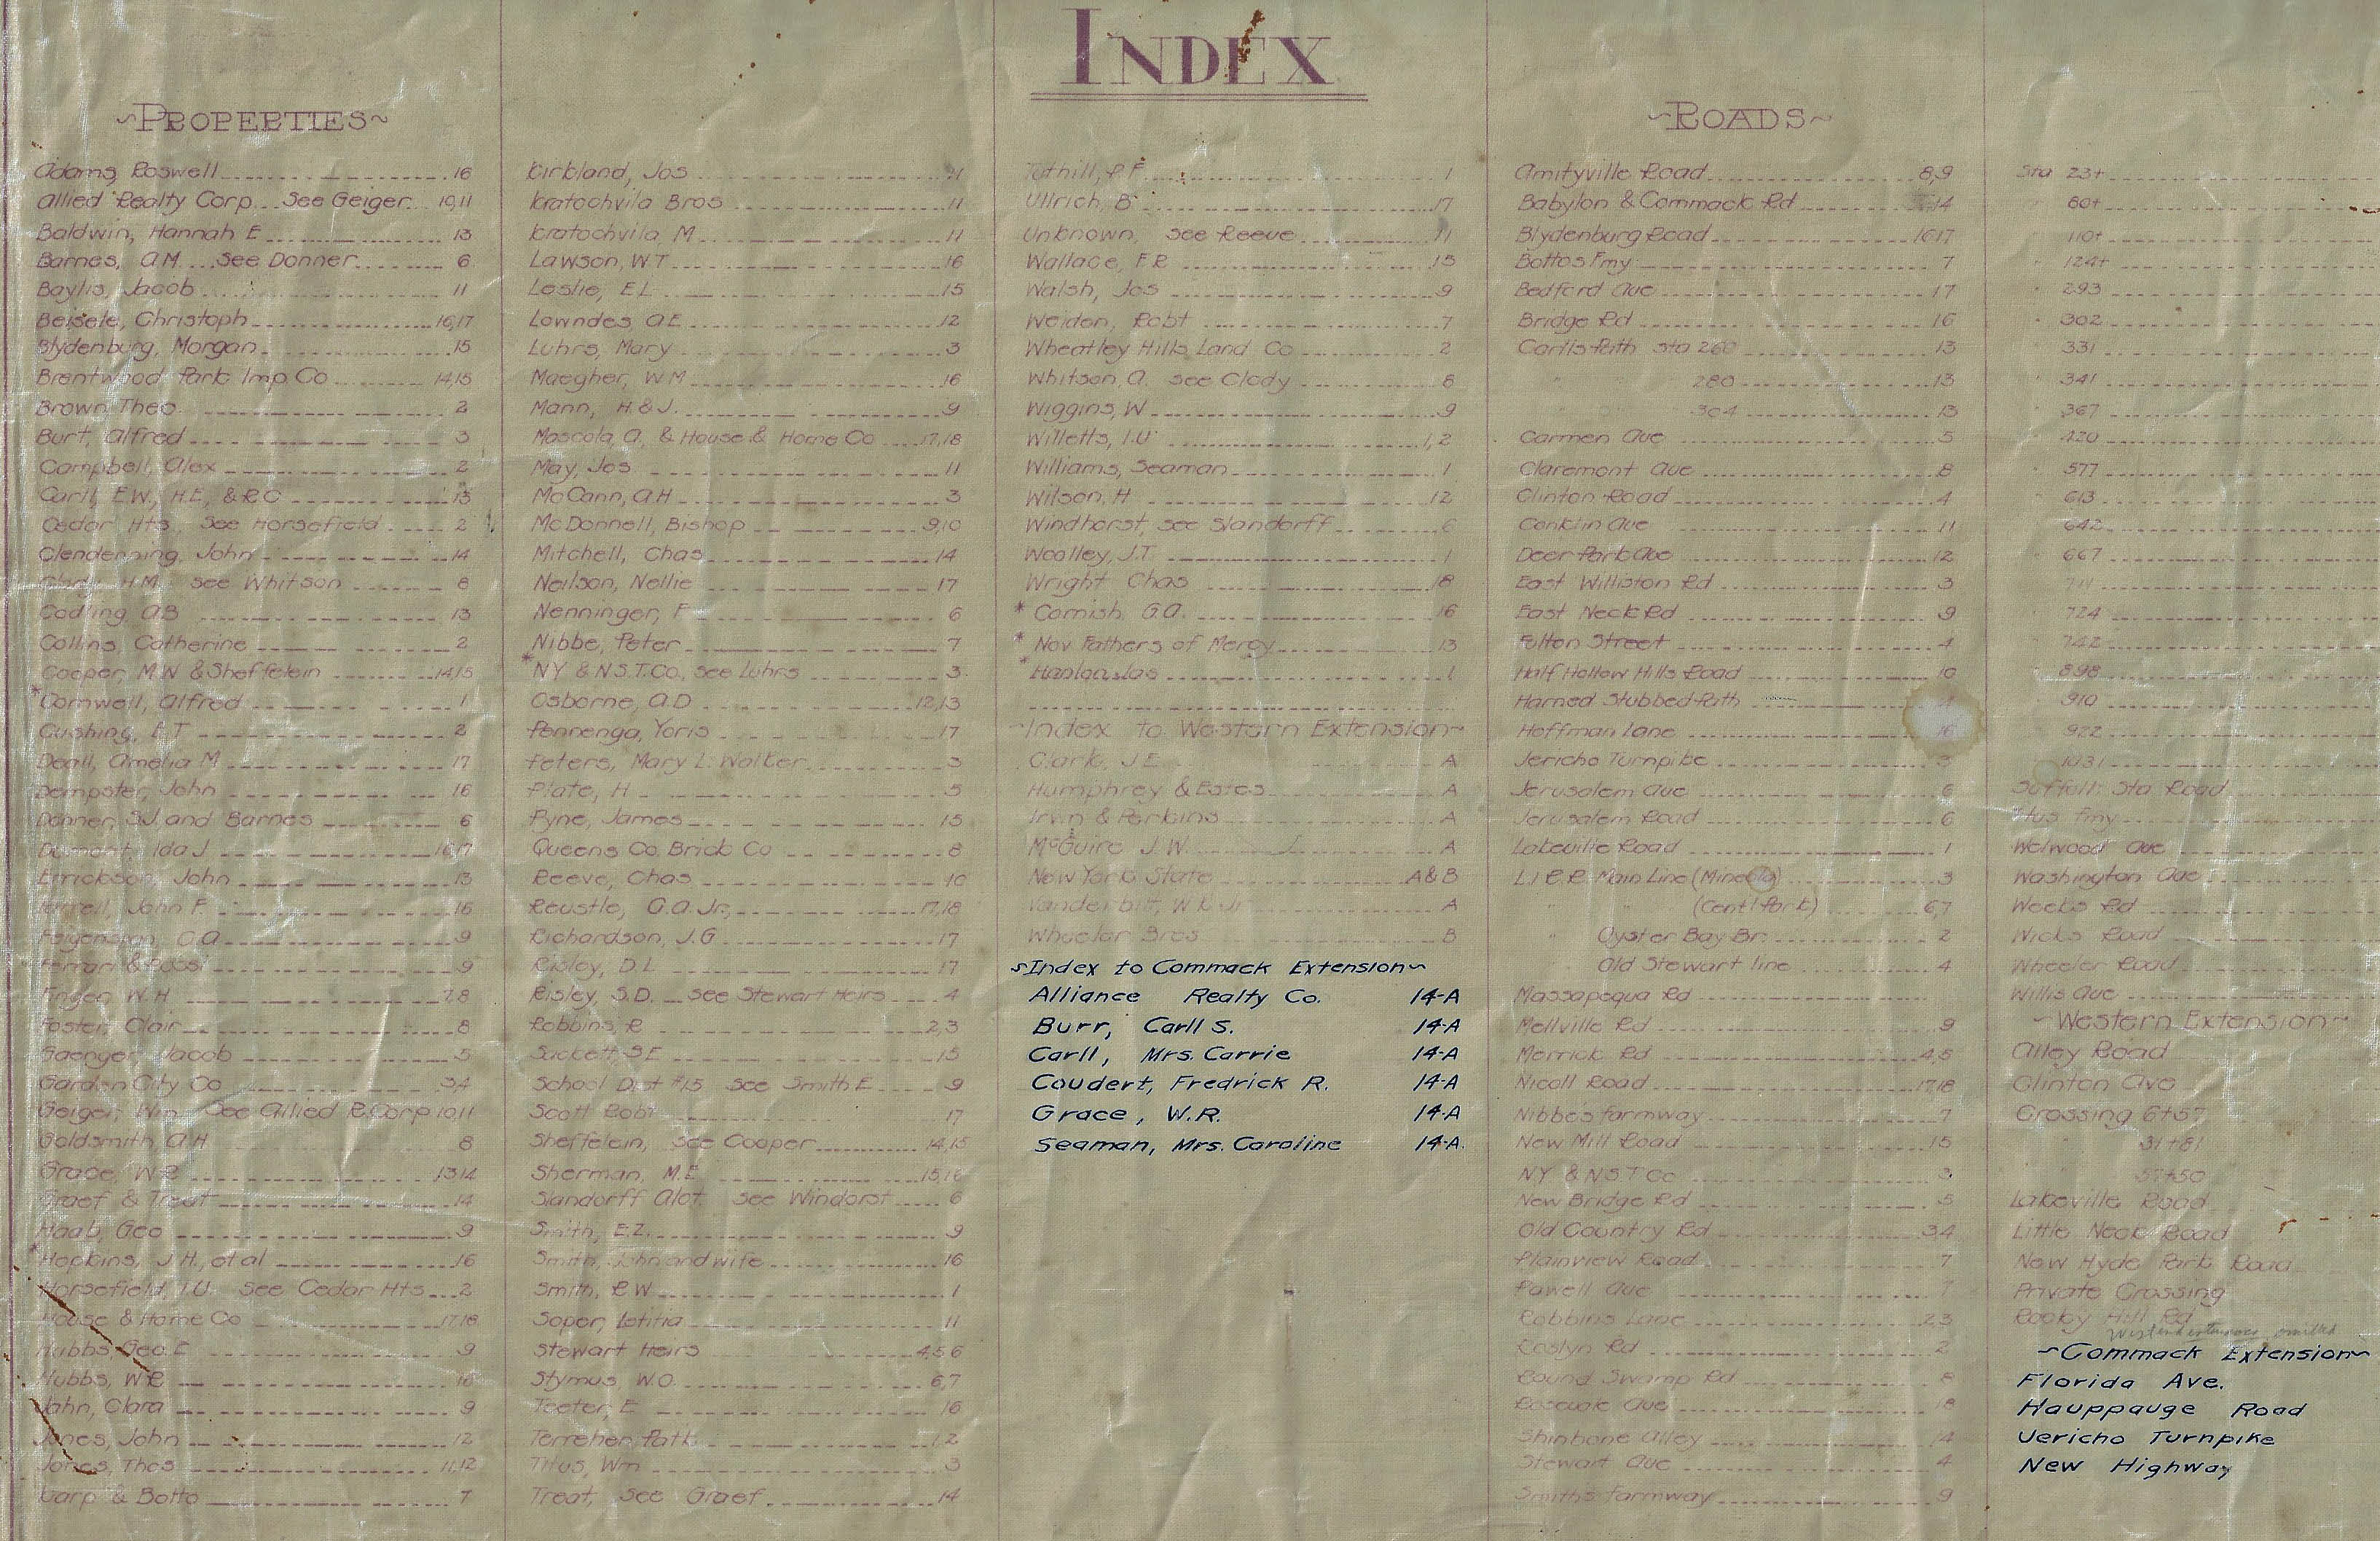 INDEX
~PROPERTIES~
Adams, Roswell 16
Allied Realty Corp. See Geiger 10,11
Baldwin, Hannah E 13
Barnes, A.M. See Donner 6
Baylis, Jacob 11
Beisele, Christoph 16,17
Blydenburg, Morgan 15
Brentwood Park Imp. Co 14,15
Brown Theo. 2
Burt, Alfred 3
Campbell, Alex 2
Carll, E.W., H.E., & R.C 13
Cedar Hts. See Horsefield 2
Clendenning, John 14
H.M. See Whitson 8
Codling A.B 13
Collins, Catherine 2
Cooper, M.W & Sheffelein 14,15
*Cornwell, Alfred 1
Cushing, E.T 2
Deall, Amelia M 17
Dempster, John 16
Donner, S.J. and Barnes 6
Ida J 16,17
Errickson, John 13
John F. 16
9
Ferrari & 9
Fingen W.H 7,8
Foster, Clair 8
Gaenger, Jacob 5
Garden City Co 3,4
Geiger, Wm. See Allied R. Corp 10,11
Goldsmith A.H 8
Grace, W R 13,14
Graef & Treat 14
Haab, Geo 9
*Hopkins, J.H., et al 16
Horsefield, I.U. See Cedar Hts 2
House & Home Co 17,18
Hubbs, Geo. E 9
Hubbs, W.R 16
Jahn, Clara 9
Jones, John 12
Jones, Thos 11,12
Karp & Botto 7
Kirkland, Jos 11
Kratochvila Bros 11
Kratochvila M. 11
Lawson, W.T 16
Leslie, E.L 15
Lowndes, A.E 12
Luhrs, Mary 3
Maegher, W.M 16
Mann, H. & J. 9
Mascola, A., & House & Home Co 17,18
May, Jos 11
McCann, A.H 3
McDonnell, Bishop 9,10
Mitchell, Chas 14
Neilson, Nellie 17
Nenninger, F 6
Nibbe, Peter 7
*NY & N.S.T.Co., See Luhrs 3
Osborne, A.D 12,13
Pennenga, Yoris 17
Peters, Mary L. Walker 3
Plate, H 5
Pyne, James 15
Queens Co. Brick Co 8
Reeve, Chas 10
Reustle, G.A. Jr. 17,18
Richardson, J.G 17
Risley, D.L 17
Risley, S.D. See Stewart Heirs 4
Robbins, R 2,3
Sackett S.E 15
School Dist #15 See Smith E 9
Scott Robt 17
Sheffelein, See Cooper 14,15
Sherman, M.E 15,16
Slandorff Alot. See Windorst 6
Smith, E.Z. 9
Smith, John and wife 16
Smith, R.W 1
Soper, Letitia 11
Stewart Heirs 4,5,6
Stymus W.O. 6,7
Teeter, E 16
Terreher, Patk 1,2
Titus, Wm 3
Treat, See Graef 14
Tuthill, P.F. 1
Ullrich, B 17
Unknown, See Reeve 11
Wallace, F.R 15
Walsh, Jos 9
Weiden, Robt 7
Wheatley Hills Land Co 2
Whitson, A. See Clody 8
Wiggins, W 9
Willetts, I.U 1,2
Williams, Seaman 1
Wilson, H 12
Windhorst, see Slandorff 6
Woolley, J.T. 1
Wright Chas 18
*Cornish, G.A. 16
*Nov Fathers of Mercy 13
*Hanlan Jas 1
~Index to Western Extension~
Clark, J.E A
Humphrey & Estes A
Irvin & Perkins A
McGuire J.W. A
New York State A&B
Vanderbilt, W.K. Jr A
Wheeler Bros B
~Index to Commack Extension~
Alliance Realty Co. 14-A
Burr, Carll S. 14-A
Carll, Mrs. Carrie 14-A
Coudert, Fredrick R. 14-A
Grace, W.R. 14-A
Seaman, Mrs. Caroline 14-A
~ROADS~
Amityville Road 8,9
Babylon & Commack Rd 14
Blydenburg Road 16,17
Bottos Fmy 7
Bedford Ave 17
Bridge Rd 16
Carlls Path Sta 260 13
" 280 13
" 304 13
Carmen Ave 5
Claremont Ave 8
Clinton Road 4
Conklin Ave 11
Deer Park Ave 12
East Williston Rd 3
East Neck Rd 9
Fulton Street 4
Half Hollow Hills Road 10
Harned Stubbed Path
Hoffman Lane 16
Jericho Turnpike 3
Jerusalem Ave 6
Jerusalem Road 6
Lakeville Road 1
L.I.R.R. Main Line (Mineola) 3
" " (Centl Park) 6,7
" Oyster Bay Br. 2
Old Stewart line 4
Massapequa Rd
Mellville Rd 9
Merrick Rd 4,5
Nicoll Road 17,18
Nibbe's farmway 7
New Mill Road 15
NY & N.S.T Co 3
New Bridge Rd 5
Old Country Rd 3,4
Plainview Road 7
Powell Ave 7
Robbins Lane 2,3
Roslyn Rd 2
Round Swamp Rd 8
Rosevale Ave 18
Shinbone Alley 14
Stewart Ave 4
Smiths farmway 9
Sta 23+
60+
110+
124+
293
302
331
341
367
420
577
613
642
667
711
724
742
898
910
922
1031
Suffolk Sta Road
Titus fmy
Welwood Ave
Washington Ave
Weeks Rd
Nicks Road
Wheeler Road
Willis Ave
~Western Extension~
Alley Road
Clinton Ave
Crossing 6+57
" 31+81
" 57+50
Lakeville Road
Little Neck Road
New Hyde Park Road
Private Crossing
Rocky Hill Rd
omitted
~Commack Extension~
Florida Ave.
Hauppauge Road
Jericho Turnpike
New Highway